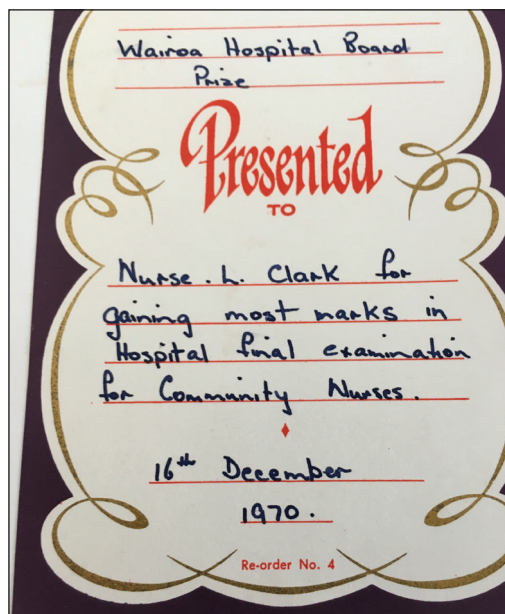 Wairoa Hospital Board
Prize
Presented
TO
Nurse. L. Clark for
gaining most marks in
Hospital final examination
for Community Nurses.
16th December
1970.
Re-order No. 4